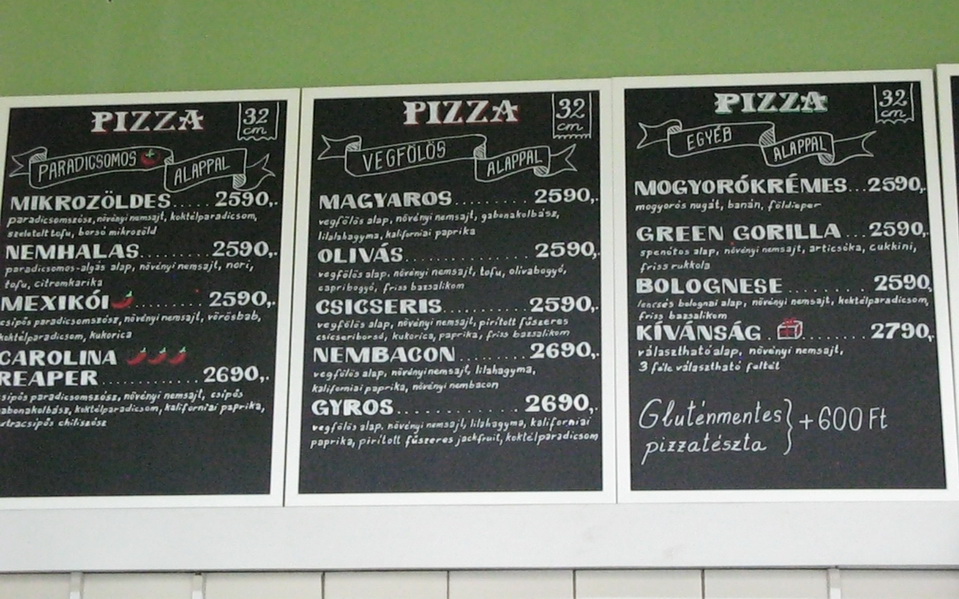 PIZZA
32 cm
PARADICSOMOS ALAPPAL
MIKROZÖLDES..... 2590,-
paradicsomszósz, növényi nemsajt, koktélparadicsom,
szeletelt tofu, borsó mikrozöld
NEMHALAS........ 2590,-
paradicsomos-algás alap, növényi nemsajt, nori,
tofu, citromkarika
MEXIKÓI........ 2590,-
csípős paradicsomszósz, növényi nemsajt, vörösbab,
koktélparadicsom, kukorica
CAROLINA
REAPER.......... 2690,-
csípős paradicsomszósz, növényi nemsajt, csípős
gabonakolbász, koktélparadicsom, kaliforniai paprika,
extracsípős chiliszósz
PIZZA
32 cm
VEGFÖLÖS ALAPPAL
MAGYAROS........ 2590,-
vegfölös alap, növényi nemsajt, gabonakolbász,
lilahagyma, kaliforniai paprika
OLIVÁS............ 2590,-
vegfölös alap, növényi nemsajt, tofu, olivabogyó,
capribogyó, friss bazsalikom
CSICSERIS......... 2590,-
vegfölös alap, növényi nemsajt, pirított fűszeres
csicseriborsó, kukorica, paprika, friss bazsalikom
NEMBACON....... 2690,-
vegfölös alap, növényi nemsajt, lilahagyma,
kaliforniai paprika, növényi nembacon
GYROS............ 2690,-
vegfölös alap, növényi nemsajt, lilahagyma, kaliforniai
paprika, pirított fűszeres jackfruit, koktélparadicsom
PIZZA
32 cm
EGYÉB ALAPPAL
MOGYORÓKRÉMES...2590,-
mogyorós nugát, banán, földieper
GREEN GORILLA... 2590,-
spenótos alap, növényi nemsajt, articsóka, cukkini,
friss rukkola
BOLOGNESE......... 2590,
lencsés bolognai alap, növényi nemsajt, koktélparadicsom,
friss bazsalikom
KÍVÁNSÁG 2790,-
választható alap, növényi nemsajt,
3 féle választható feltét
Gluténmentes
pizzatészta } +600 Ft